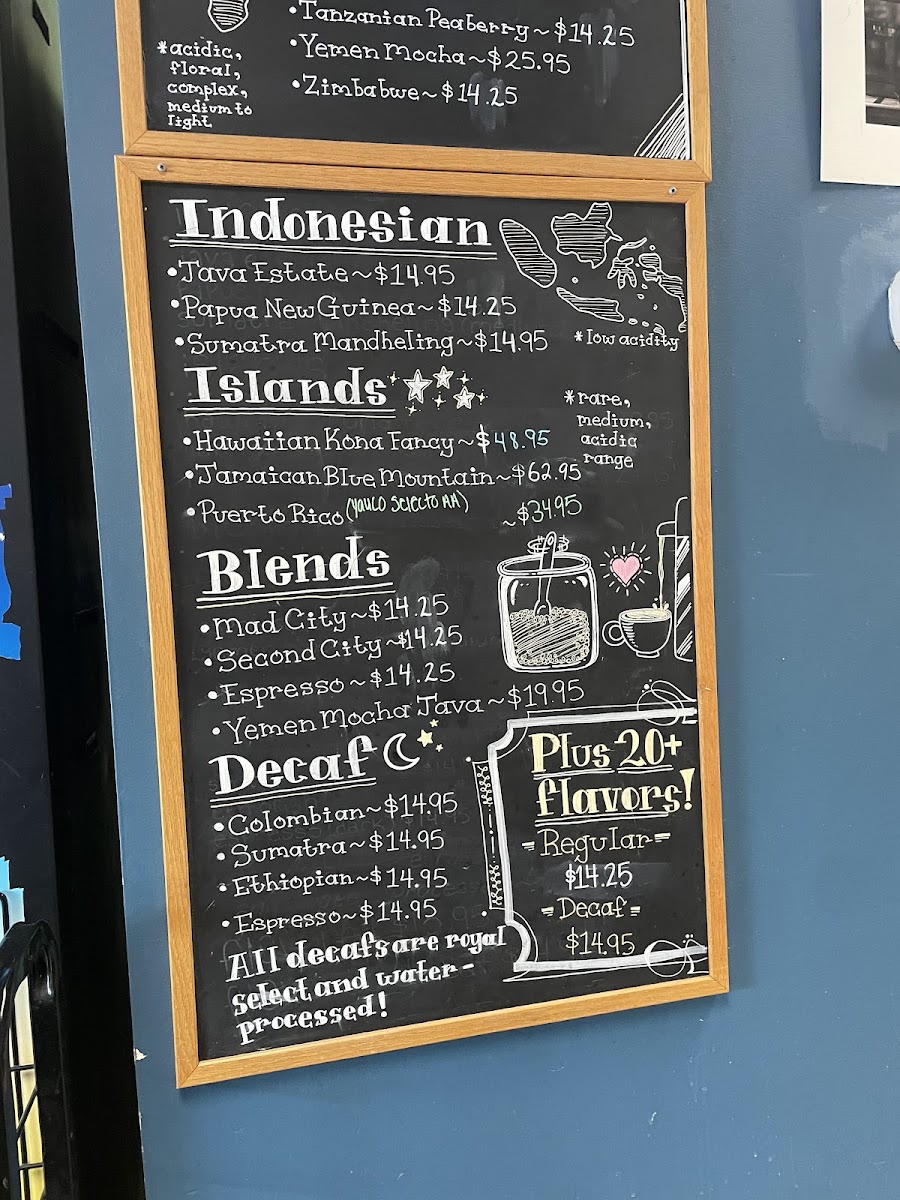 •Tanzanian Peaberry~$14.25
•Yemen Mocha~$25.95
•Zimbabwe~$14.25
*acidic,
floral,
complex,
medium to
light
Indonesian
•Java Estate~$14.95
•Papua New Guinea~$14.25
•Sumatra Mandheling~$14.95
*low acidity
Islands
*rare,
medium,
acidic
range
•Hawaiian Kona Fancy~$48.95
•Jamaican Blue Mountain~$62.95
•Puerto Rico (Yauco Selecto AA) ~$34.95
Blends
•Mad City~$14.25
•Second City~$14.25
•Espresso~$14.25
•Yemen Mocha Java~$19.95
Decaf
•Colombian~$14.95
•Sumatra~$14.95
•Ethiopian~$14.95
•Espresso~$14.95
All decafs are royal
select and water-
processed!
Plus 20+
flavors!
=Regular=
$14.25
=Decaf=
$14.95